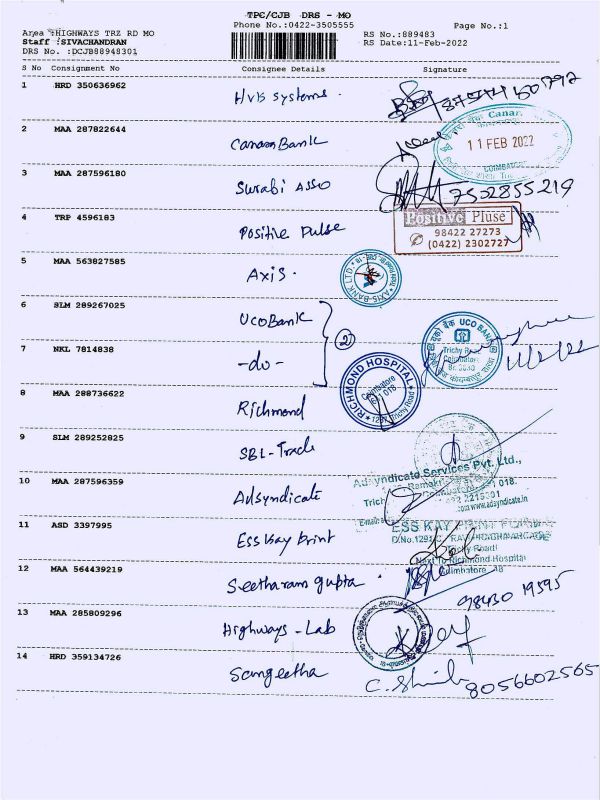 TPC/CJB DRS - MO
Phone No.:0422-3505555
Page No.:1
Area :HIGHWAYS TRZ RD MO
Staff :SIVACHANDRAN
DRS No. :DCJB88948301
RS No.:889483
RS Date:11-Feb-2022
S No Consignment No Consignee Details Signature
1 HRD 350636962 HVB Systems.
2 MAA 287822644 Canara Bank
Canar
11 FEB 2022
COIMBATORE
3 MAA 287596180 Surabi Asso 7502855219
4 TRP 4596183 Positive Pulse
Positive Pluse
98422 27273
(0422) 2302727
5 MAA 563827585 Axis.
AXIS-BANK LTD.
6 SLM 289267025 UCO Bank
(2)
यूको बैंक UCO BANK
Trichy Road
Coimbatore
7 NKL 7814838 -do-
11/2/22
8 MAA 288736622 Richmond
RICHMOND HOSPITAL
Coimbatore
641 018
1297, Trichy Road
9 SLM 289252825 SBI-Trade
10 MAA 287596359 Adsyndicate
Adsyndicate Services Pvt. Ltd.,
11 ASD 3397995 Ess Kay Print
ESS KAY PRINT
Trichy Road
Next To Richmond Hospital
Coimbatore
12 MAA 564439219 Seetharam gupta. 98430 19595
13 MAA 285809296 Highways - Lab
14 HRD 359134726 Sangeetha 8056602565